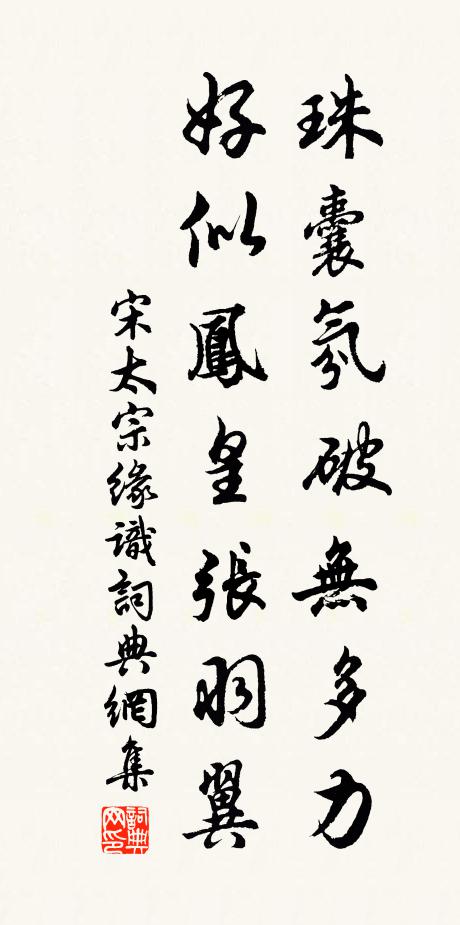 珠囊氛破無多力
好似鳳皇張羽翼
宋太宗緣識詞典網集
詞典网印